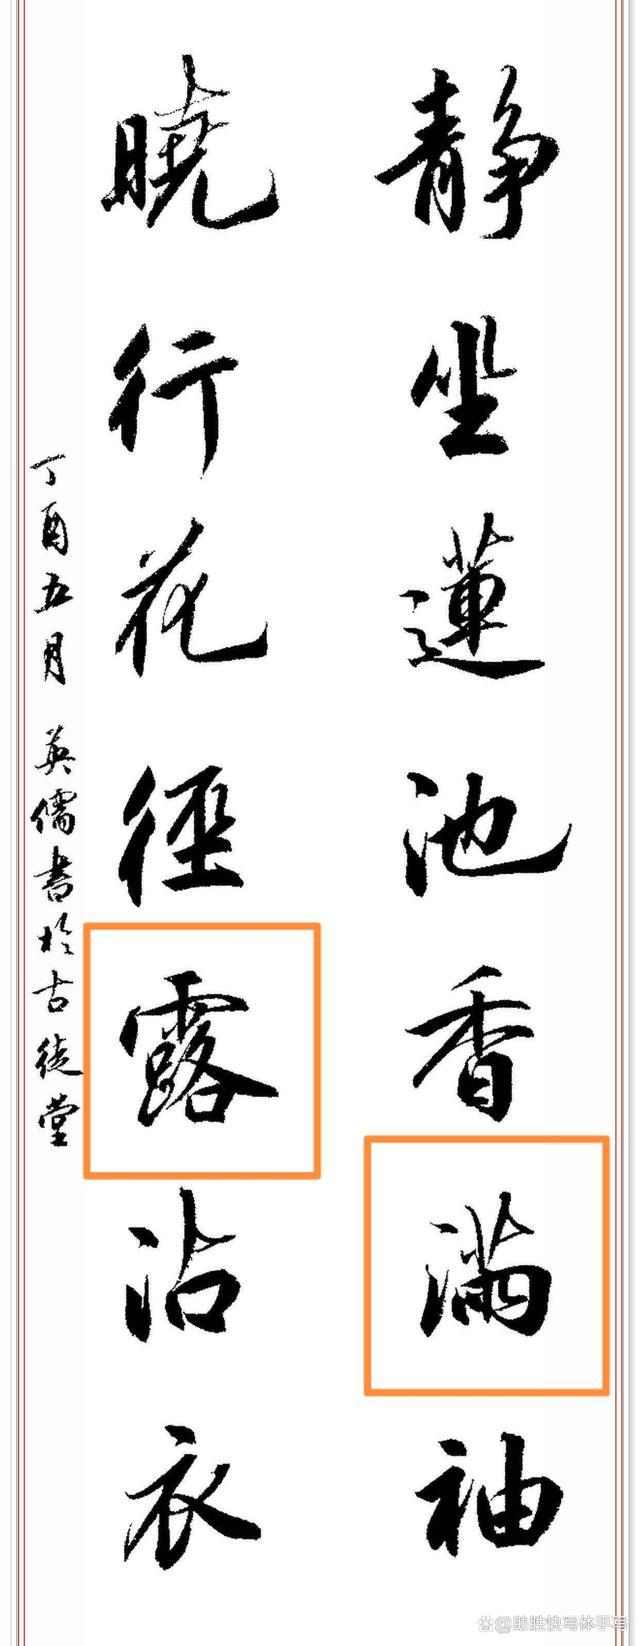 静坐蓮池香满袖
曉行花徑露沾衣
丁酉五月 英儒書於古徒堂
@助胜快写体手写